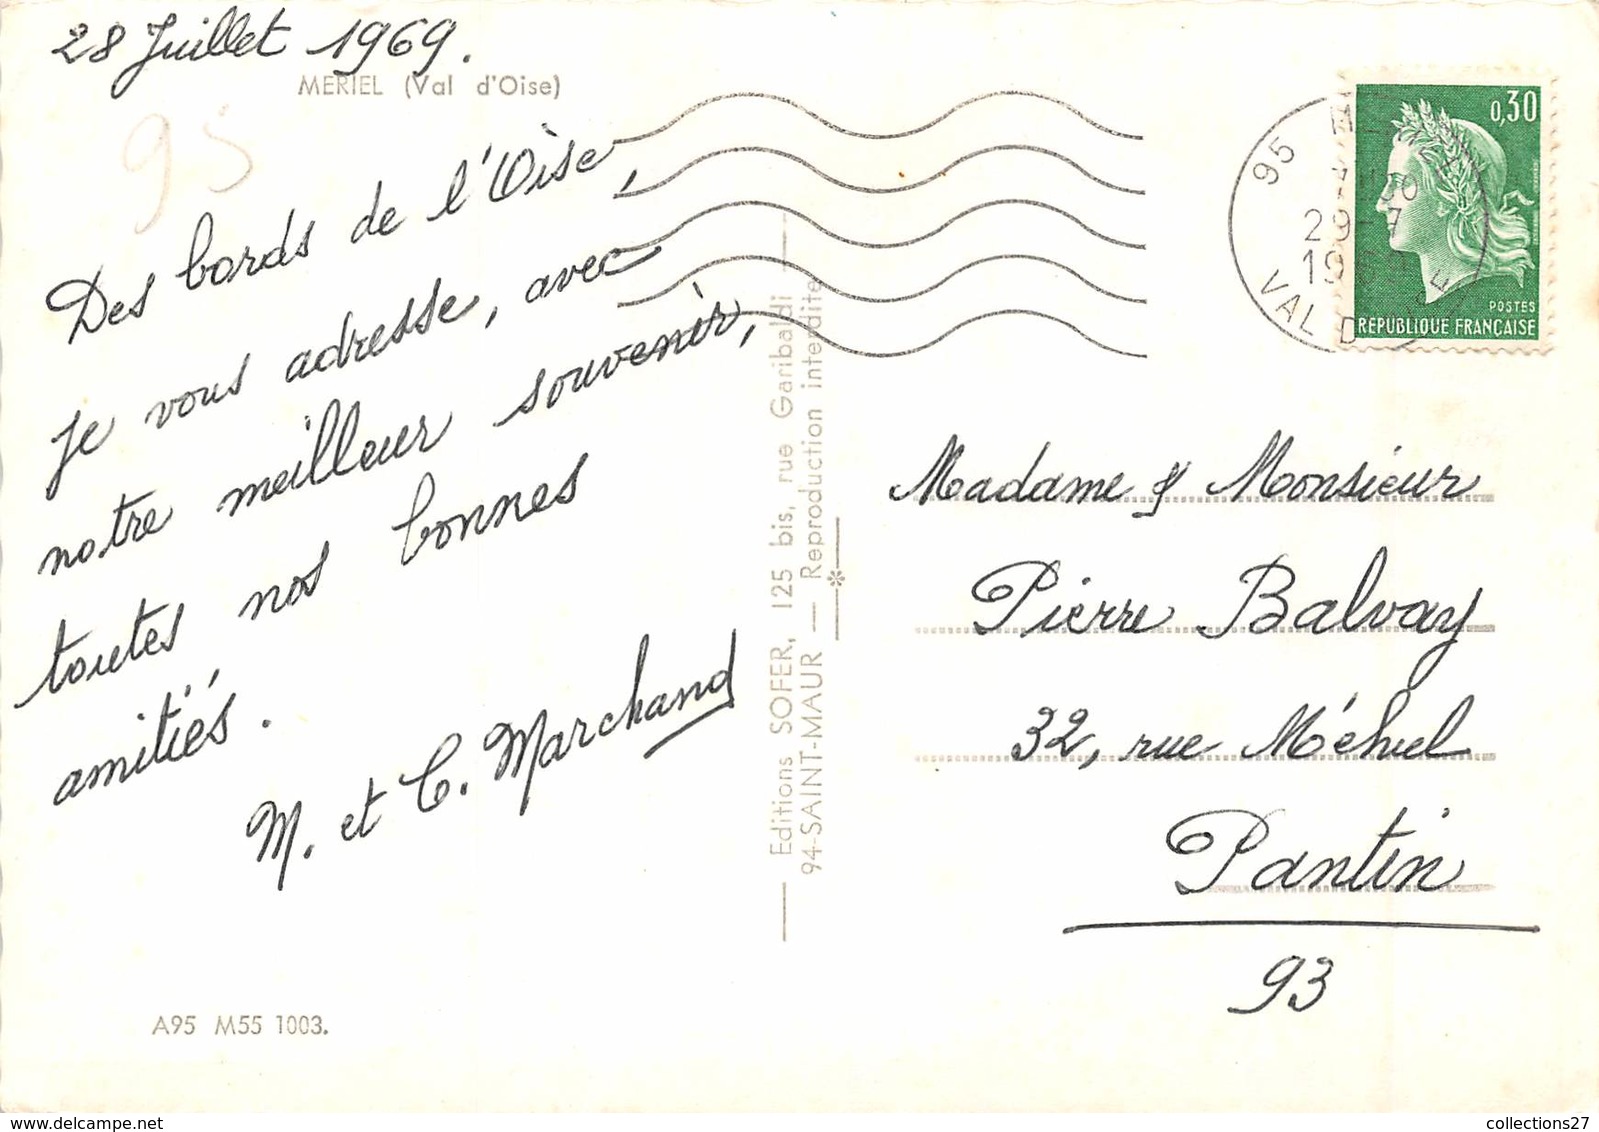 28 Juillet 1969.
MERIEL (Val d'Oise)
95
Des bords de l'Oise,
je vous adresse, avec
notre meilleur souvenir,
toutes nos bonnes
amitiés.
M. et C. Marchand
A95 M55 1003.
Editions SOFER, 125 bis, rue Garibaldi
94-SAINT-MAUR — Reproduction interdite
95
29-7
VAL D'
0,30
POSTES
REPUBLIQUE FRANÇAISE
Madame & Monsieur
Pierre Balvay
32, rue Méhul
Pantin
93
collections27